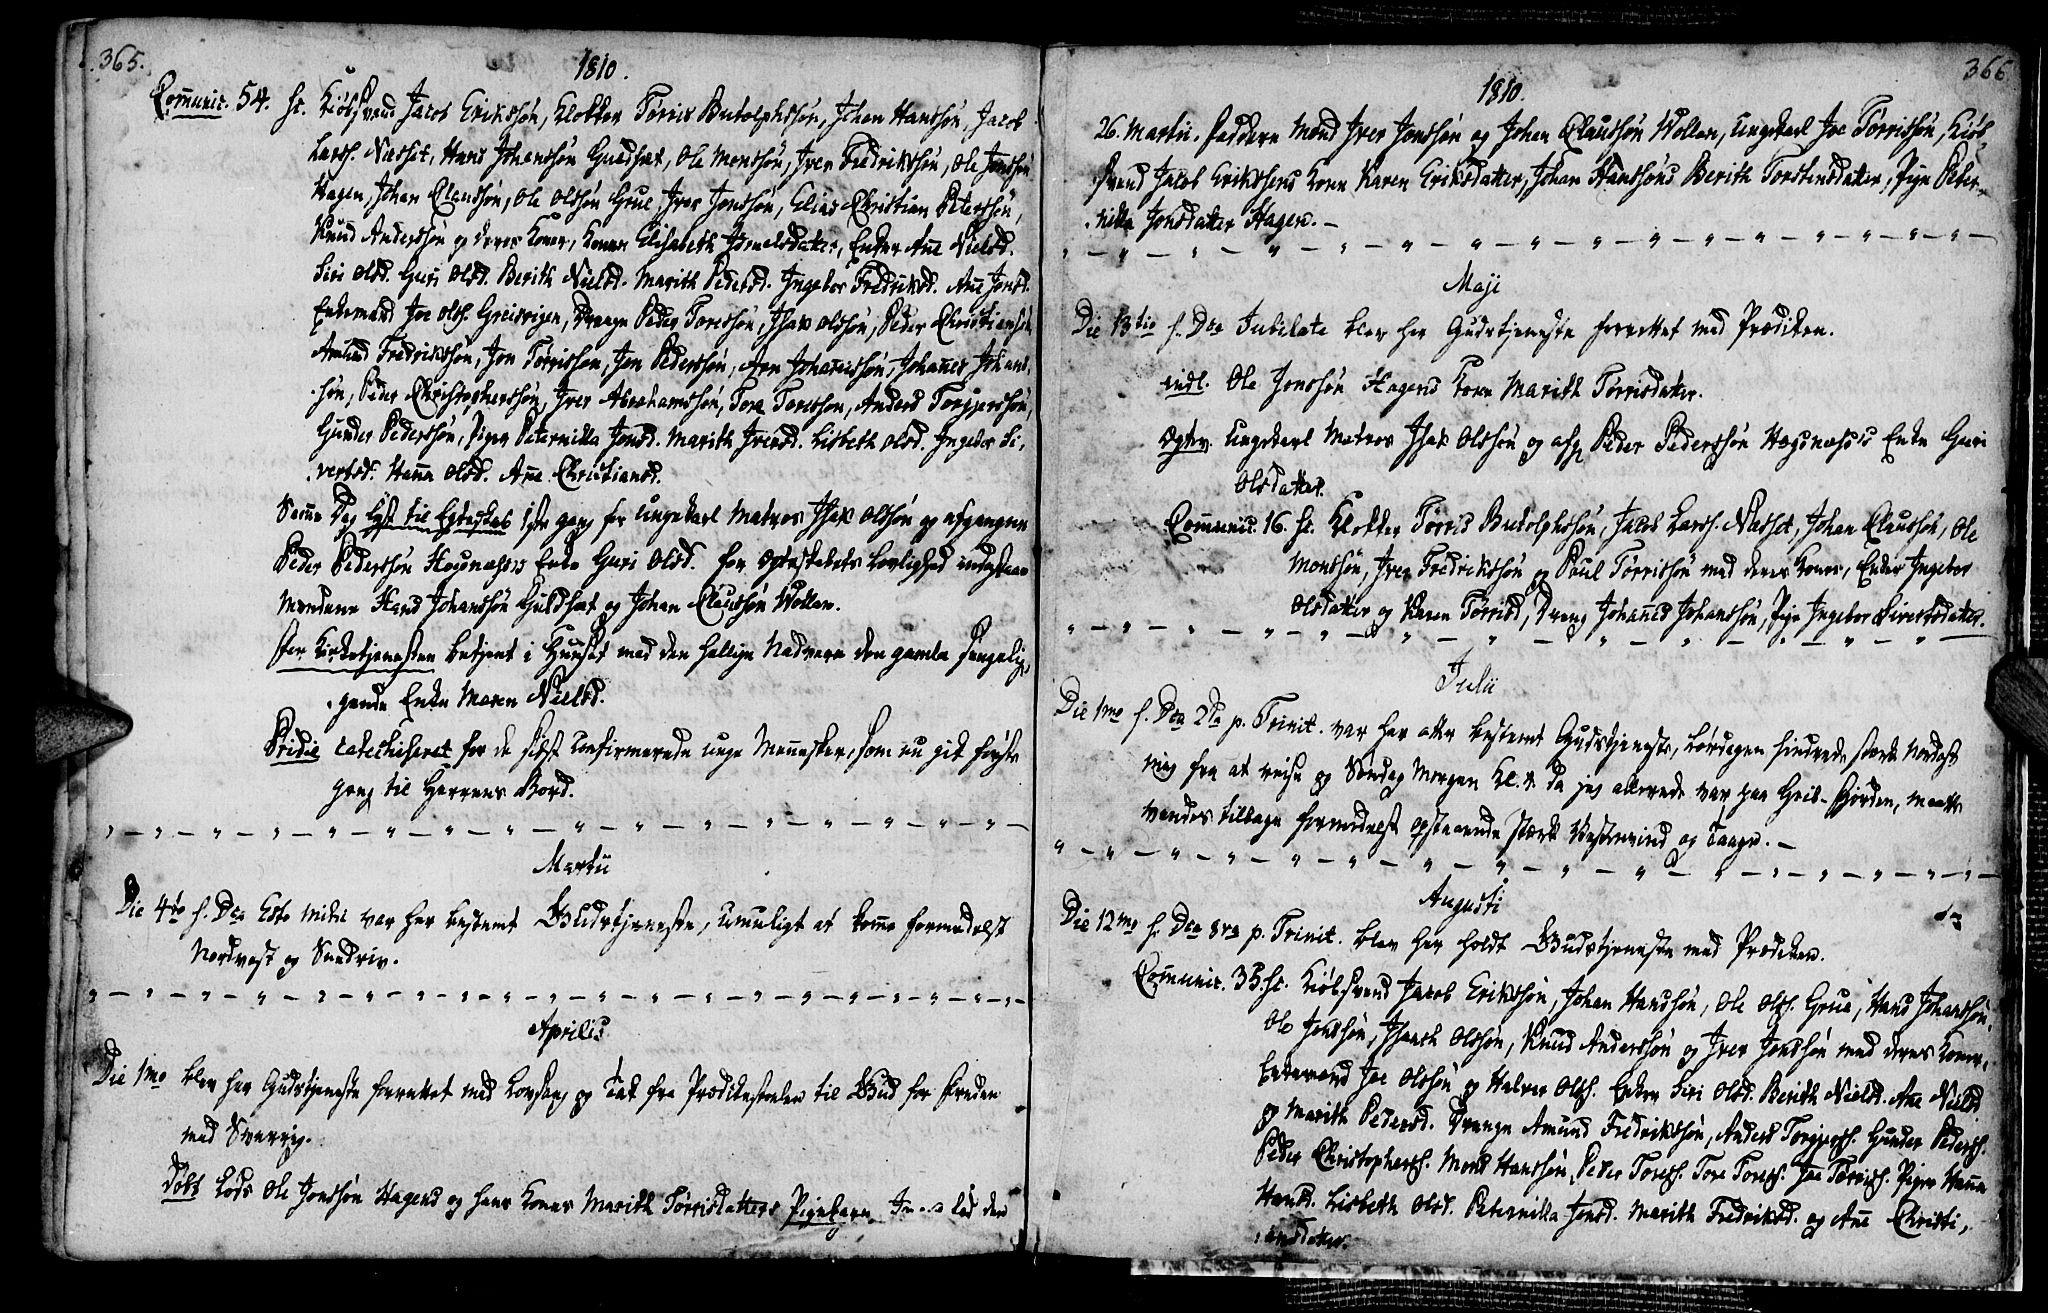 365.
1810.
Communic. 54. st. Kiøbsvend Jacob Erikssøn, Klokker Tørris Butolphssøn, Johan Hanssøn, Jacob
Larss. Næsset, Hans Johanssøn Guldhæt, Ole Monssøn, Iver Fredrikssøn, Ole Jonssøn
Hagen, Johan Claussøn, Ole Olssøn Grue, Iver Jonssøn, Elias Christian Peterssøn,
Knud Anderssøn og deres Koner, Konen Elisabeth Ismelsdatter, Enker Ane Nielsd.
Siri Olsd. Guri Olsd. Berith Nielsd. Marith Pedersd. Ingebor Fredriksd. Ane Jonsd.
Enkemand Joe Olss. Greisvigen, Drenge Peder Toressøn, Isak Olssøn, Peder Christianssøn
Amund Fredrikssøn, Jon Tørrissøn, Jon Pederssøn, Aen Johannissøn, Johannes Johans-
søn, Peder Christopherssøn, Iver Abrahamssøn, Tore Toressøn, Anders Torgjerssøn,
Gunder Pederssøn, Piger Peternilla Jonsd. Marith Iversd. Lisbeth Olsd. Ingebor Si-
vertsd. Hanna Olsd. Ane Christiansd.
Samme Dag lyst til Egteskab 1ste gang for Ungekarl Matros Isak Olssøn og afgangne
Peder Pederssøn Høgnæsses Enke Guri Olsd. For Egteskabets Lovlighed indestaae
Mændene Hans Johanssøn Guldhæt og Johan Claussøn Wollen.
Efter Kirketjenesten betjent i Huuset med den hellige Nadvere den gamle sengelig-
gende Enke Maren Nielsd.
Pridie catechiseret for de sidst confirmerede unge Mennesker, som nu gik første
gang til Herrens Bord.
Martii
Die 4to s. Dca Esto mihi var her bestemt Gudstjeneste, umuligt at komme formedelst
Nordvest og Snedriv.
Aprilis
Die 1mo blev her Gudstjeneste forrettet med Lovsang og Tak fra Prædikestoelen til Gud for Freden
med Sverrig.
Døbt Lods Ole Jonssøn Hagens og hans Kones Marith Tørrisdatters Pigebarn født den
366
1810.
26. Martii. Faddere Mænd Iver Jonssøn og Johan Claussøn Wollen, Ungekarl Joe Tørrissøn, Kiøb-
svend Jacob Erikssens Kone Karen Eriksdatter, Johan Hanssøns Berith Torstensdatter, Pige Peter-
nilla Jonsdatter Hagen.
Maji
Die 13tio s. Dca Jubilate blev her Gudstjeneste forrettet med Prædiken.
indl. Ole Jonssøn Hagens Kone Marith Tørrisdatter.
Egtev. Ungekarl Matros Isak Olssøn og afg. Peder Pederssøn Høgnæsses Enke Guri
Olsdatter.
Communic. 16. st. Klokker Tørris Butolphssøn, Jacob Larss. Næsset, Johan Claussøn, Ole
Monssøn, Iver Fredrikssøn og Poul Tørrissøn med deres Koner, Enker Ingebor
Olsdatter og Karen Tørrisd, Dreng Johannes Johanssøn, Pige Ingebor Sivertsdatter.
Julii
Die 1mo s. Dca 2da p. Trinit. var her atter bestemt Gudstjeneste, Lørdagen hindrede stærk Nordost
mig fra at reise og Søndag Morgen Kl. 8. da jeg allerede var paa Griis-Fjorden, maatte
vendes tilbage formedelst opstaaende stærk Vestenvind og Taage.
Augusti
Die 12mo s. Dca 8va p. Trinit. blev her holdt Gudstjeneste med Prædiken.
Communic. 33. st. Kiøbsvend Jacob Erikssøn, Johan Hanssøn, Ole Olss. Grue, Hans Johanssøn,
Ole Jonssøn, Isaach Olssøn, Knud Anderssøn og Iver Jonssøn med deres Koner,
Enkemænd Joe Olssøn og Halvor Olss. Enker Siri Olsd. Berith Nielsd. Ane Nielsd
og Marith Pedersd. Drenge Amund Fredrikssøn, Anders Torgjerss. Gunder Pederss.
Peder Christopherss. Mons Hanssøn, Peder Toress. Tore Toress. Joe Tørriss. Piger Hanna
Hansd. Lisbeth Olsd. Peternilla Jonsd. Marith Fredriksd. og Ane Christi-
ansdatter.